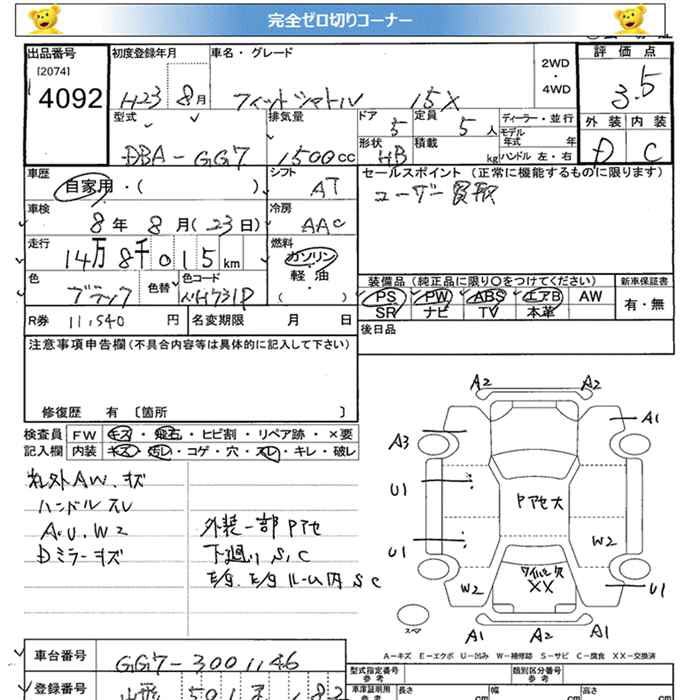 完全ゼロ切りコーナー
出品番号
[2074]
4092
初度登録年月
H23 8月
車名・グレード
フィットシャトル 15X
2WD
・
4WD
評価点
3.5
外装 内装
D C
型式
DBA-GG7
排気量
1500cc
ドア
5
定員
5人
形状
HB
積載
kg
ディーラー・並行
モデル年式 年
ハンドル 左・右
車歴
自家用・( )
シフト
AT
セールスポイント (正常に機能するものに限ります)
ユーザー買取
車検
8年 8月(23日)
冷房
AAC
走行
14万8千015km
燃料
ガソリン
軽・油
( )
色
ブラック
色替
色コード
NH731P
装備品 (純正品に限り○をつけてください)
新車保証書
PS PW ABS エアB AW
SR ナビ TV 本革
有・無
R券 11,540 円
名変期限 月 日
後日品
注意事項申告欄(不具合内容等は具体的に記入して下さい)
修復歴 有 〔箇所 〕
検査員
記入欄
FW キズ・飛石・ヒビ割・リペア跡・×要
内装 キズ・汚レ・コゲ・穴・スレ・キレ・破レ
社外AW、キズ
ハンドルスレ
A.U.W2
Dミラーキズ
外装一部Pアセ
下廻りS,C
ルーム内SC
A2 A2
A3 A1
U1
Pアセ大
U1 W2
W2
ワイパー欠
XX
U1
スペア
A1 A2 A1
A-キズ E-エクボ U-凹み W-補修跡 S-サビ C-腐食 XX-交換済
車台番号
GG7-3001146
登録番号
山形 501
型式指定番号
参考
類別区分番号
参考
車庫証明用
参考
長さ cm
幅 cm
高さ cm